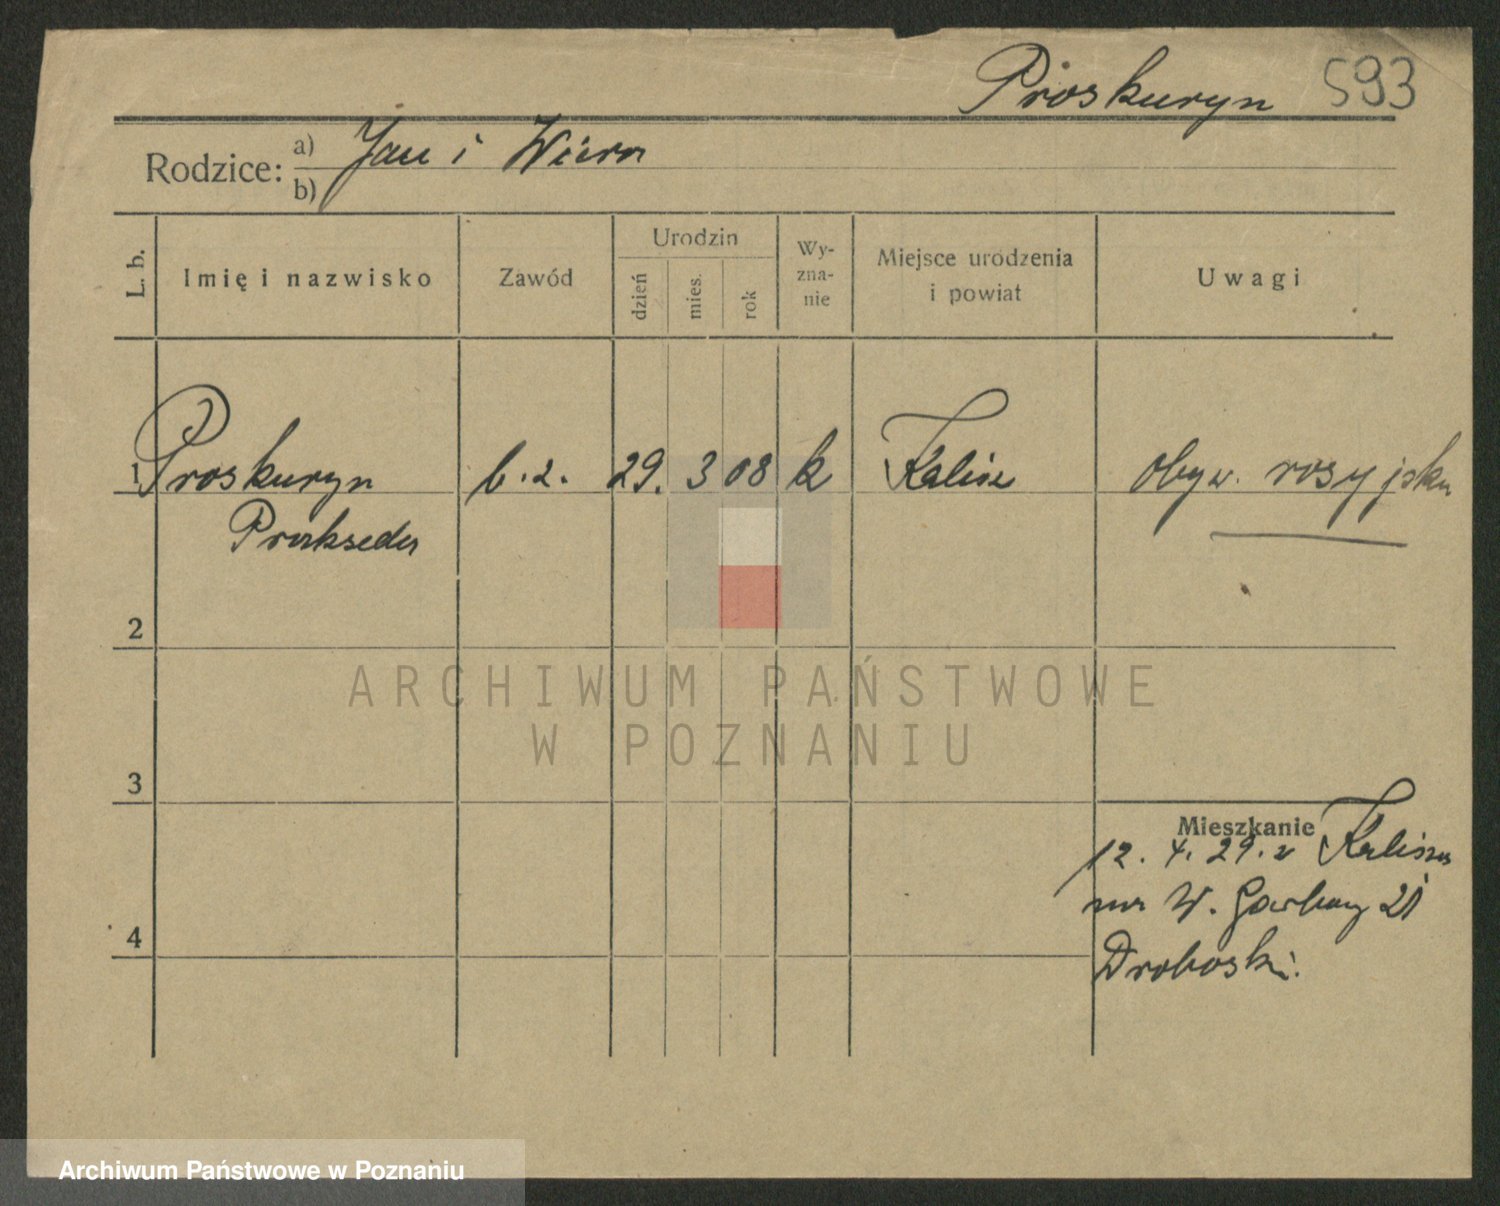 Proskuryn 593
Rodzice: a) Jan i Wiera
b)
L. b. Imię i nazwisko Zawód Urodzin dzień mies. rok Wy-zna-nie Miejsce urodzenia i powiat Uwagi
1 Proskuryn b.z. 29. 3 08 k Kalisz obyw. rosyjska
Prakseda
2
ARCHIWUM PAŃSTWOWE
W POZNANIU
3
Mieszkanie
12. 4. 29. z Kalisza
na W. Garbary 21
Droboski.
4
Archiwum Państwowe w Poznaniu